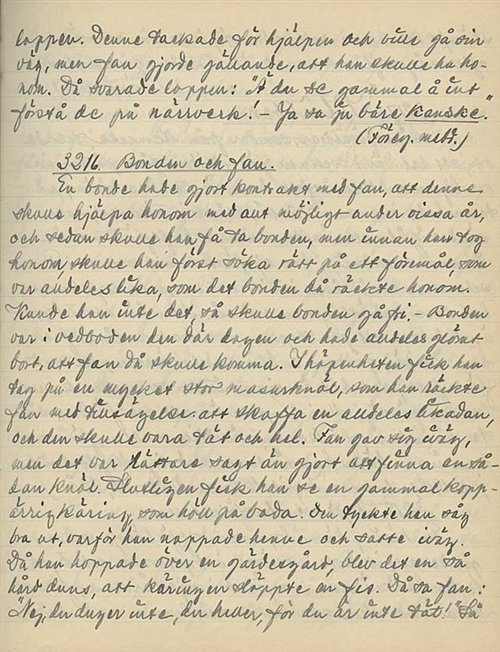 loppen. Denne tackade för hjälpen och ville gå sin
väg, men fan gjorde gällande, att han skulle ha ho-
nom. Då svarade loppen: "Ä du se gammal å int
förstå de på närrverk! – Ja sa ju bäre kanske."
(Föreg. medd.)
3216. Bonden och fan.
En bonde hade gjort kontrakt med fan, att denne
skulle hjälpa honom med allt möjligt under vissa år,
och sedan skulle han få ta bonden, men innan han tog
honom, skulle han först söka rätt på ett föremål, som
var alldeles lika, som det bonden då räckte honom.
Kunde han inte det, så skulle bonden gå fri. – Bonden
var i vedboden den där dagen och hade alldeles glömt
bort, att fan då skulle komma. I häpenheten fick han
tag på en mycket stor masurknöl, som han räckte
fan med tillsägelse att skaffa en alldeles likadan,
och den skulle vara tät och hel. Fan gav sig iväg,
men det var lättare sagt än gjort att finna en så-
dan knöl. Slutligen fick han se en gammal kopp-
ärrig käring, som höll på bada. Den tyckte han såg
bra ut, varför han nappade henne och satte iväg.
Då han hoppade över en gärdesgård, blev det en så
hård duns, att käringen släppte en fis. Då sa fan:
"Nej, du duger inte, du heller, för du är inte tät!" Så